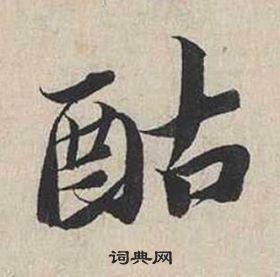 酤
词典网